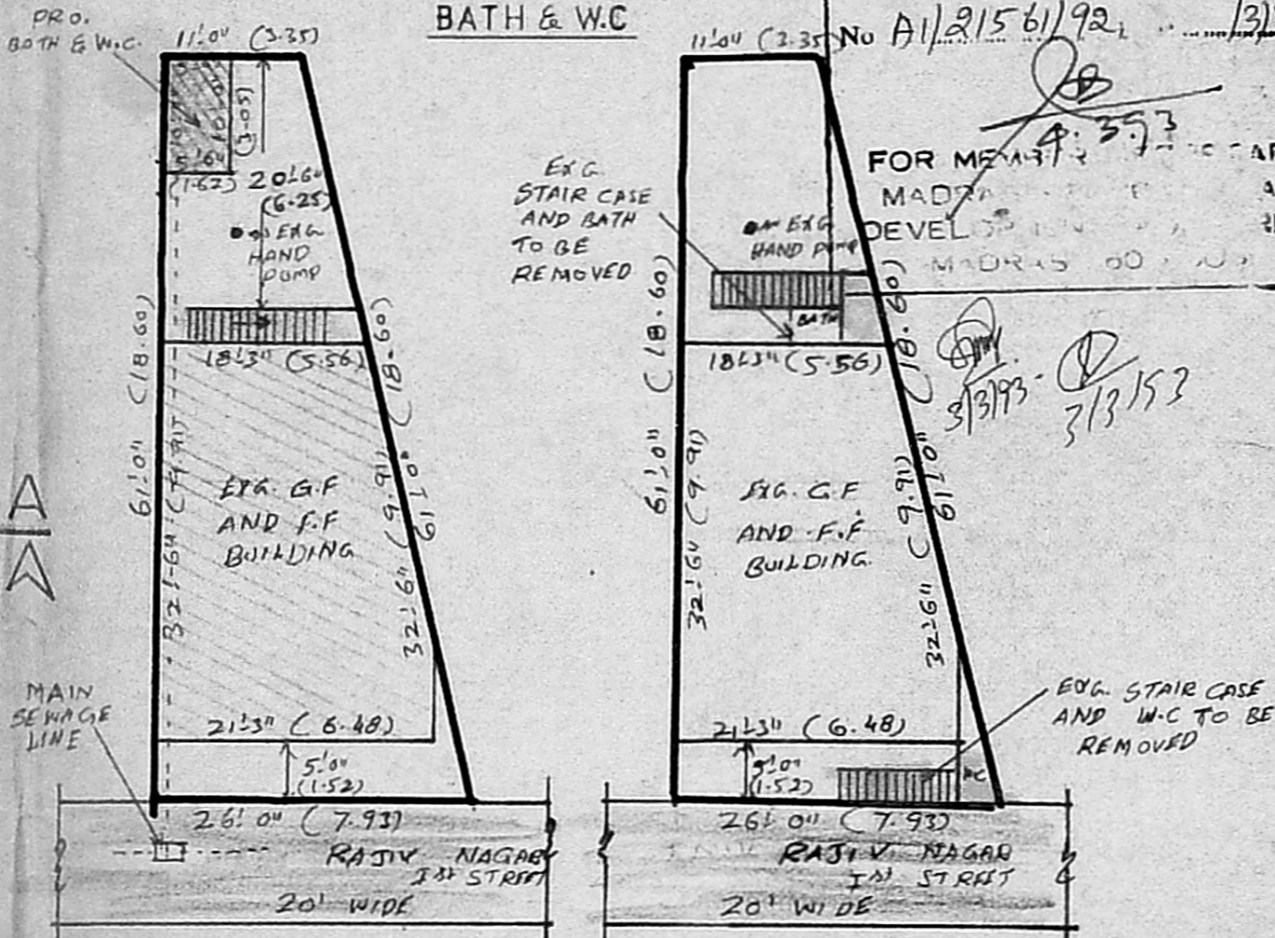 PRO.
BATH & W.C.
BATH & W.C
11'-0" (3.35)
(3.05)
5'6"
(1.62)
20'6"
(6.25)
EXG
HAND
PUMP
18'-3" (5.56)
61'-0" (18.60)
(18.60)
32'-6" (9.91)
EXG. G.F
AND F.F
BUILDING
(9.91)
61'-0"
32'-6"
MAIN
SEWAGE
LINE
21'-3" (6.48)
5'-0"
(1.52)
26'-0" (7.93)
RAJIV NAGAR
Ist STREET
20' WIDE
11'-0" (3.35)
No A1/21561/92,
4.3.93
FOR MEMBER
DEVEL
MADRAS 600
3/3/93
3/3/93
EXG.
STAIR CASE
AND BATH
TO BE
REMOVED
EXG
HAND PUMP
BATH
18'-3" (5.56)
61'-0" (18.60)
(18.60)
32'-6" (9.91)
EXG. G.F
AND F.F
BUILDING.
32'-6" (9.91)
61'-0"
EXG. STAIR CASE
AND W.C TO BE
REMOVED
21'-3" (6.48)
5'-0"
(1.52)
WC
26'-0" (7.93)
RAJIV NAGAR
Ist STREET
20' WIDE